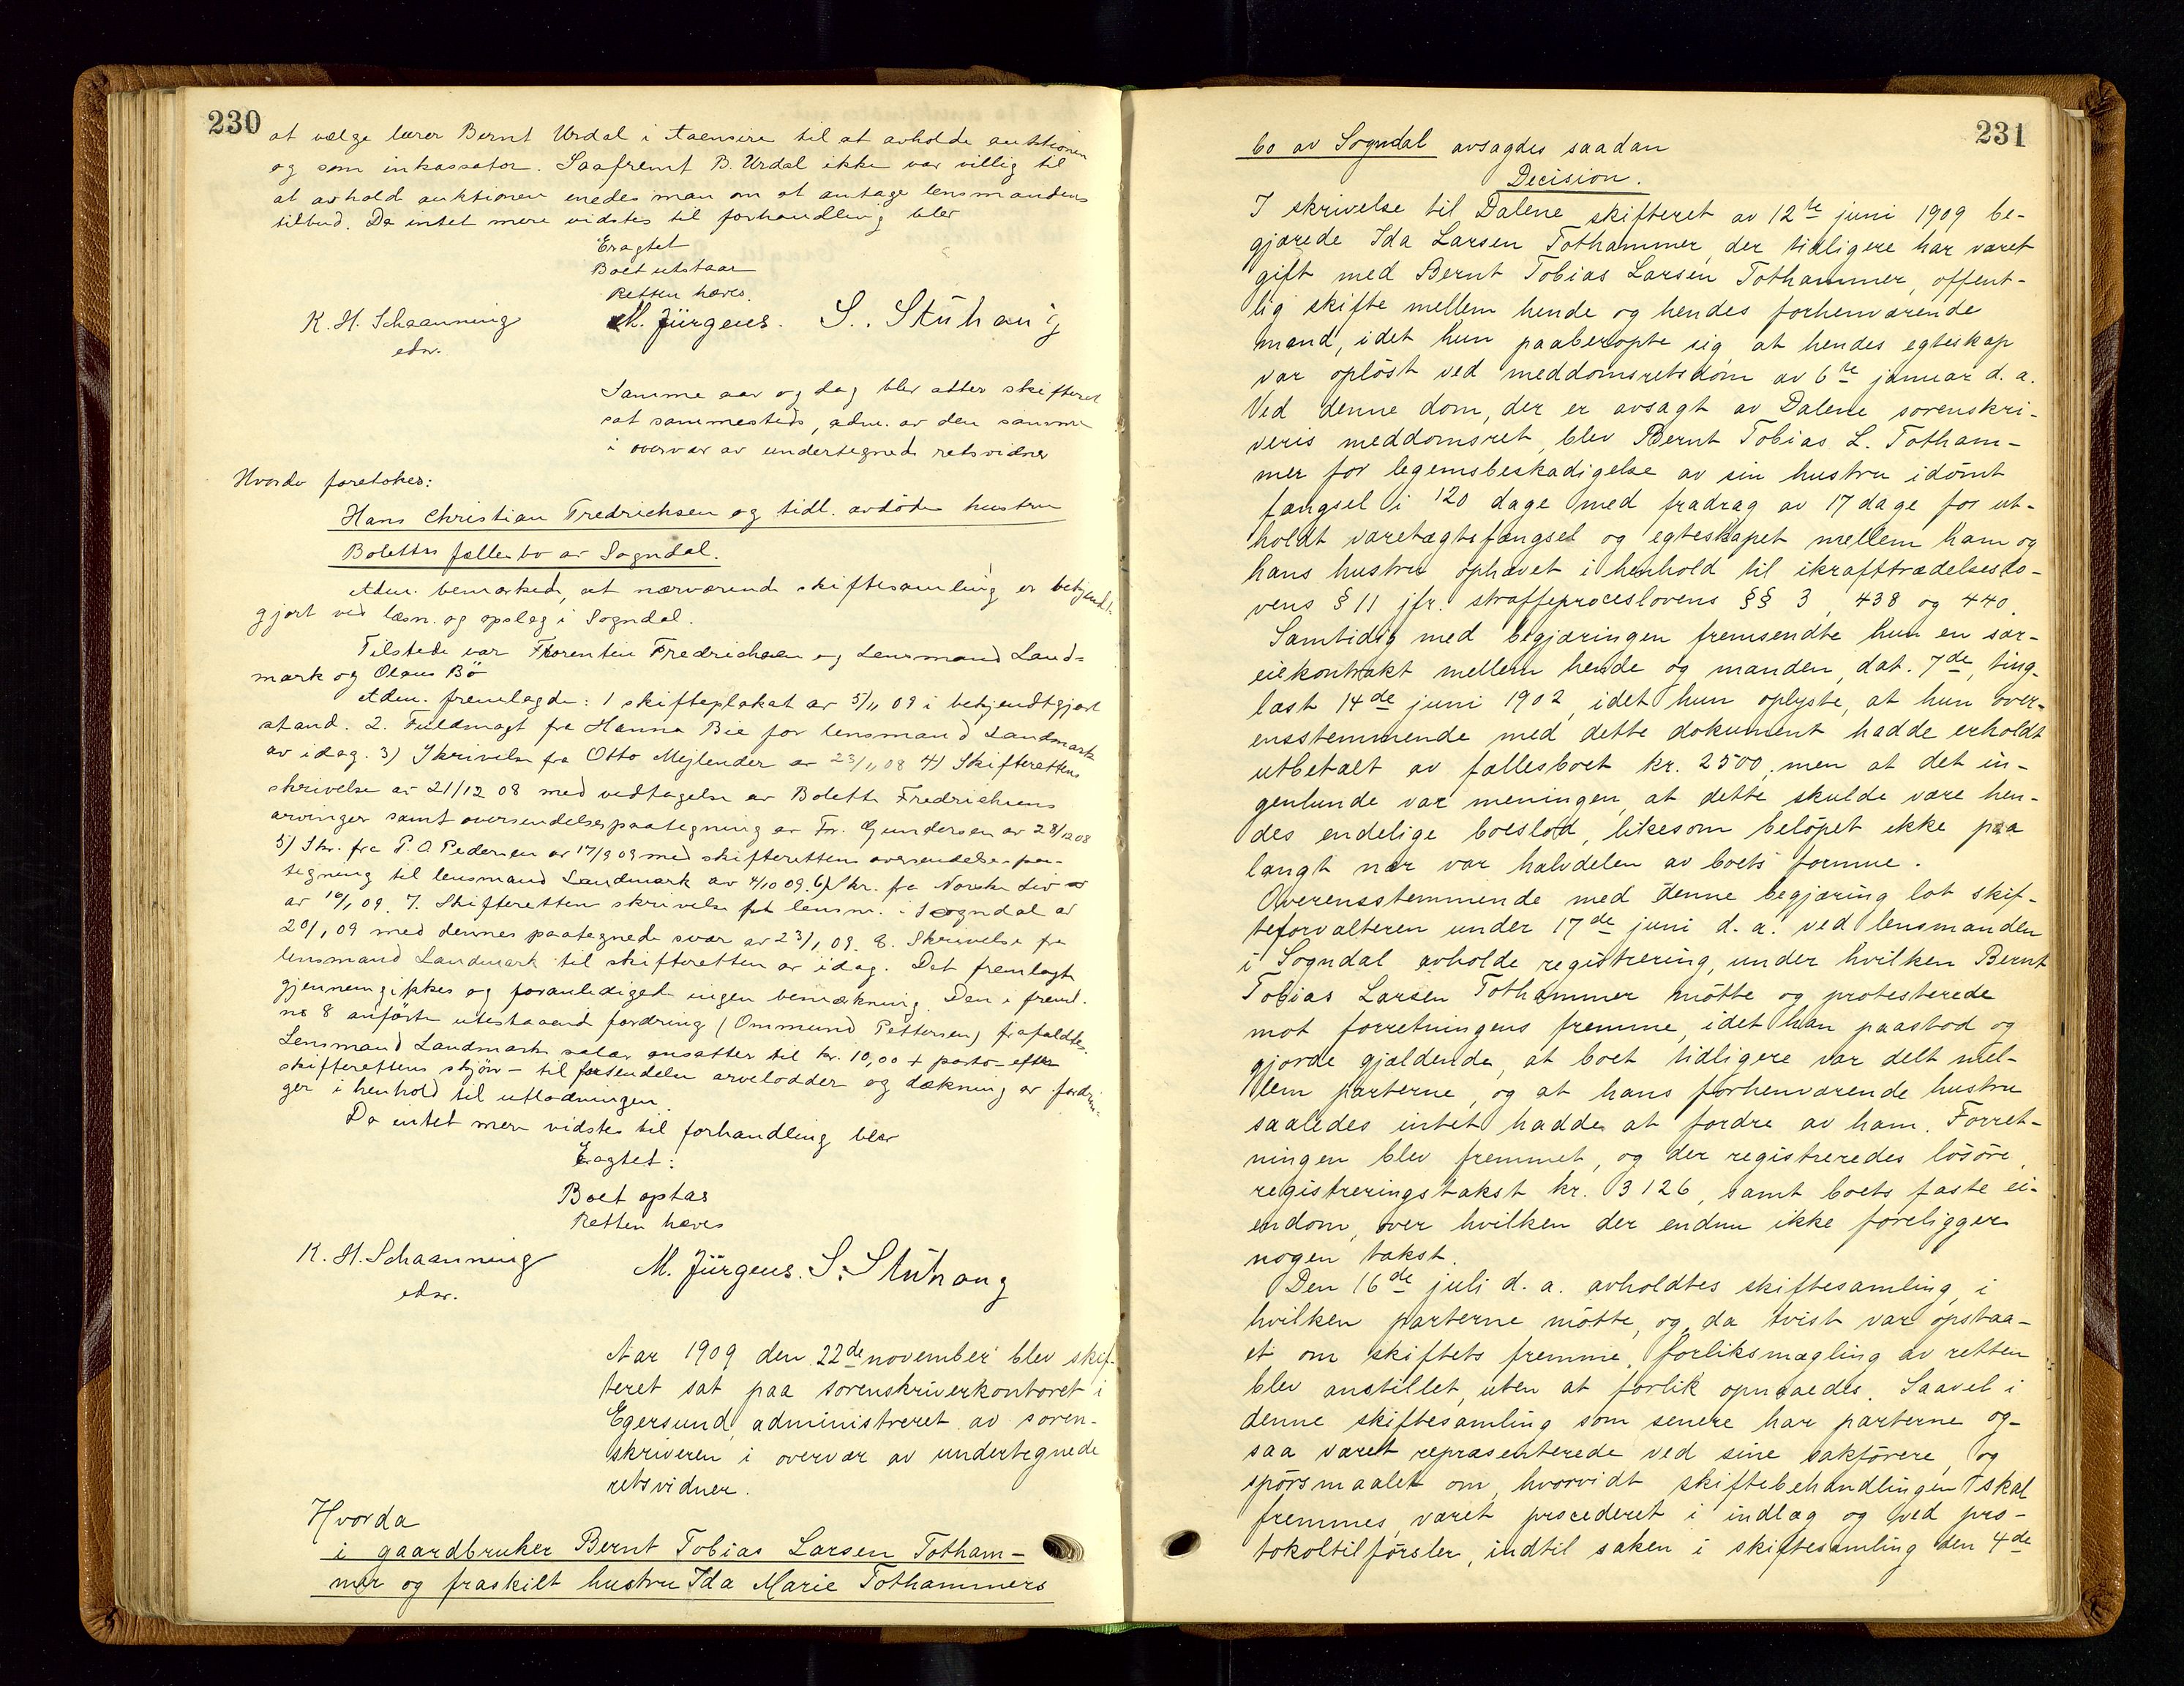 230
at vælge lærer Bernt Urdal i Aaensire til at avholde auktionen
og som inkassator. Saafremt B. Urdal ikke var villig til
at avhold auktionen enedes man om at antage lensmandens
tilbud. Da intet mere vidstes til forhandling blev
Eragtet
Boet utstaar
Retten hæves.
K. H. Schaanning
edsv.
M. Jürgens. S. Stuhaug
Samme aar og dag blev atter skifteret
sat sammesteds, adm. av den samme
i overvær av undertegnede retsvidner
Hvorda foretokes:
Hans Christian Fredrichsen og tidl. avdöde hustru
Bolettes fællesbo av Sogndal.
Adm. bemærkede, at nærværende skiftesamling er bekjendt-
gjort ved læsn. og opslag i Sogndal.
Tilstede var Florentin Fredrichsen og Lensmand Land-
mark og Olaus Bö
Adm. fremlagde: 1 skifteplakat av 5/11 09 i bekjendtgjort
stand. 2. Fuldmagt fra Hanna Bie for lensmand Landmark
av idag. 3) Skrivelse fra Otto Mejlender av 23/11 08 4) Skifterettens
skrivelse av 21/12 08 med vedtagelse av Bolette Fredrichsens
arvinger samt oversendelsespaategning av Fr. Gundersen av 28/12 08
5) Skr. fra P. O Pedersen av 17/9 09 med skifterettens oversendelsespaa-
tegning til lensmand Landmark av 4/10 09. 6) Skr. fra Norske Liv
av 16/1 09. 7. Skifterettens skrivelse til lensm. i Sogndal av
20/1 09 med dennes paategnede svar av 23/1 09. 8. Skrivelse fra
lensmand Landmark til skifteretten av idag. Det fremlagte
gjennemgikkes og foranledigede ingen bemærkning. Den i freml.
no 8 anförte utestaaende fordring (Ommund Pettersen) frafaldtes.
Lensmand Landmarks salær ansattes til kr. 10,00 + porto - efter
skifterettens skjön - til forsendelse arvelodder og dækning av fordrin-
ger i henhold til utlodningen
Da intet mere vidstes til forhandling blev
Eragtet:
Boet optas
Retten hæves
K. H. Schaanning
edsv.
M. Jürgens. S. Stuhaug
Aar 1909 den 22de november blev skif-
teret sat paa sorenskriverkontoret i
Egersund, administreret av soren-
skriveren i overvær av undertegnede
retsvidner.
Hvorda
i gaardbruker Bernt Tobias Larsen Totham-
mer og fraskilt hustru Ida Marie Tothammers
231
bo av Sogndal avsagdes saadan
Decision.
I skrivelse til Dalene skifteret av 12te juni 1909 be-
gjærede Ida Larsen Tothammer, der tidligere har været
gift med Bernt Tobias Larsen Tothammer, offent-
lig skifte mellem hende og hendes forhenværende
mand, idet hun paaberopte sig, at hendes egteskap
var oplöst ved meddomsretsdom av 6te januar d. a.
Ved denne dom, der er avsagt av Dalene sorenskri-
veris meddomsret, blev Bernt Tobias L. Totham-
mer for legemsbeskadigelse av sin hustru idömt
fængsel i 120 dage med fradrag av 17 dage for ut-
holdt varetægtsfængsel og egteskapet mellem ham og
hans hustru ophævet i henhold til ikrafttrædelseslo-
vens § 11 jfr. straffeproceslovens §§ 3, 438 og 440.
Samtidig med begjæringen fremsendte hun en sær-
eiekontrakt mellem hende og manden, dat. 7de, ting-
læst 14de juni 1902, idet hun oplyste, at hun over-
ensstemmende med dette dokument hadde erholdt
utbetalt av fællesboet kr. 2500, men at det in-
genlunde var meningen, at dette skulde være hen-
des endelige boeslod, likesom belöpet ikke paa
langt nær var halvdelen av boets formue.
Overensstemmende med denne begjæring lot skif-
teforvalteren under 17de juni d. a. ved lensmanden
i Sogndal avholde registrering, under hvilken Bernt
Tobias Larsen Tothammer mötte og protesterede
mot forretningens fremme, idet han paastod og
gjorde gjældende, at boet tidligere var delt mel-
lem parterne, og at hans forhenværende hustru
saaledes intet hadde at fordre av ham. Forret-
ningen blev fremmet, og der registreredes lösöre,
registreringstakst kr. 3126, samt boets faste ei-
endom, over hvilken der endnu ikke foreligger
nogen takst.
Den 16de juli d. a. avholdtes skiftesamling, i
hvilken parterne mötte, og, da tvist var opstaa-
et om skiftets fremme, forliksmægling av retten
blev anstillet, uten at forlik opnaaedes. Saavel i
denne skiftesamling som senere har parterne og-
saa været repræsenterede ved sine sakförere, og
spörsmaalet om, hvorvidt skiftebehandlingen skal
fremmes, været procederet i indlæg og ved pro-
tokoltilförsler, indtil saken i skiftesamling den 4de